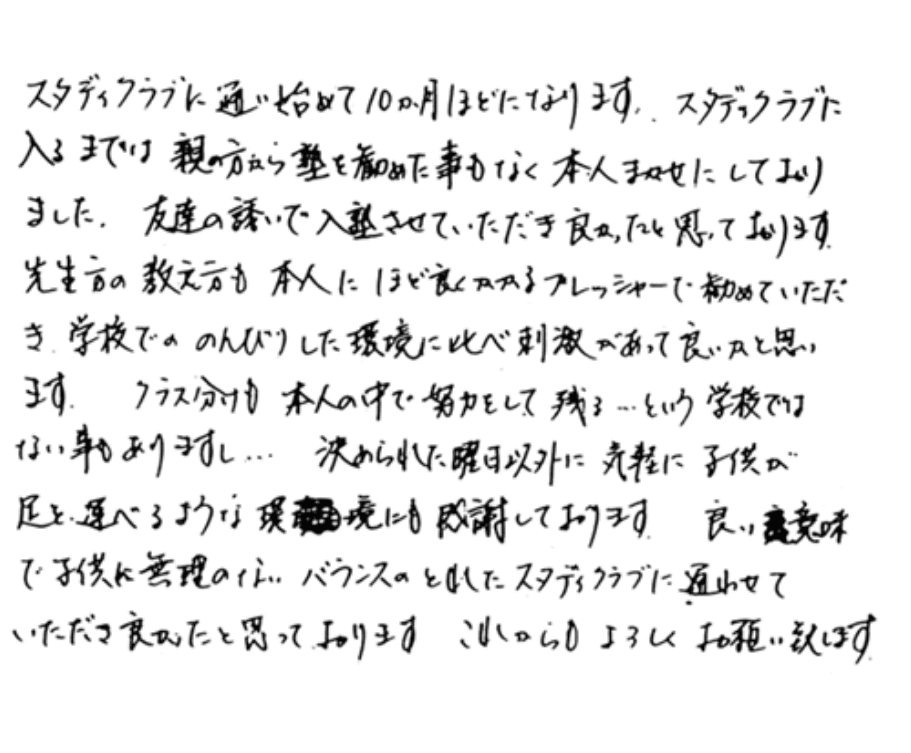 スタディクラブに通い始めて10か月ほどになります. スタディクラブに
入るまでは親の方から塾を勧めた事もなく本人まかせにしており
ました. 友達の誘いで入塾させていただき良かったと思っております.
先生方の教え方も本人にほど良くかかるプレッシャーで勧めていただ
き.学校でののんびりした環境に比べ刺激があって良いかと思い
ます. クラス分けも本人の中で努力をして残る…という学校では
ない事もありますし… 決められた曜日以外に気軽に子供が
足を運べるような環境にも感謝しております 良い意味
で子供に無理のない バランスのとれたスタディクラブに通わせて
いただき良かったと思っております これからもよろしくお願い致します.